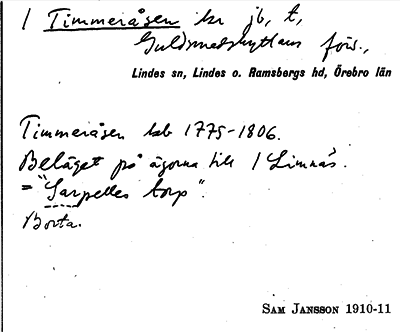 1 Timmeråsen kr jb, t,
Guldsmedshyttans förs.,
Lindes sn, Lindes o. Ramsbergs hd, Örebro län
Timmeråsen hb 1775-1806.
Beläget på ägorna till 1 Limnäs.
= "Sarpelles torp".
Borta.
SAM JANSSON 1910-11